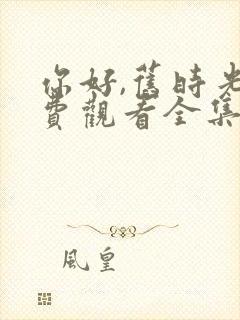 你好,舊時光
費觀看全集
風皇